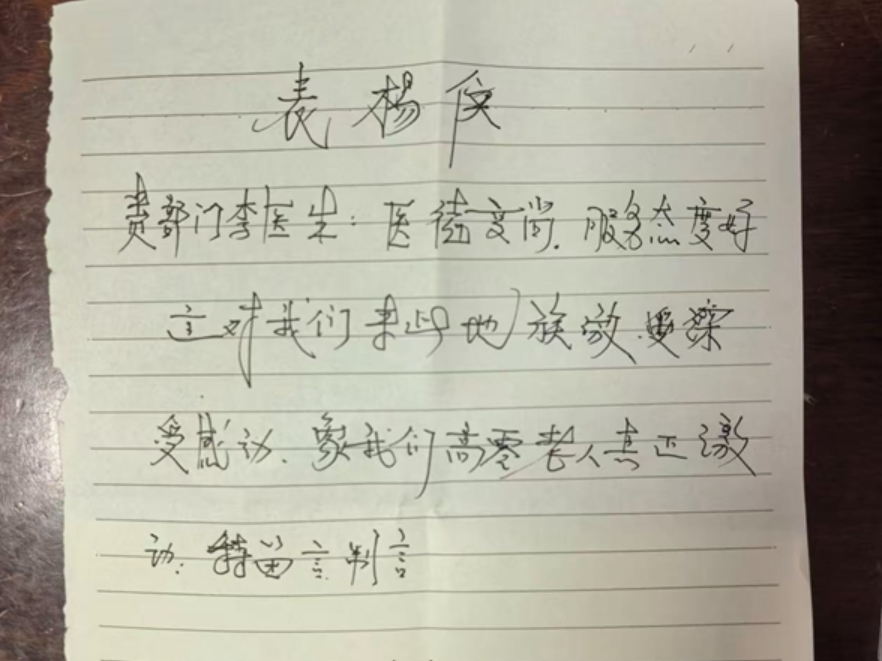 表杨信
贵部门李医生：医德高尚．服务态度好
这对我们来此地旅游深
受感动．象我们高零老人真正激
动．特留言